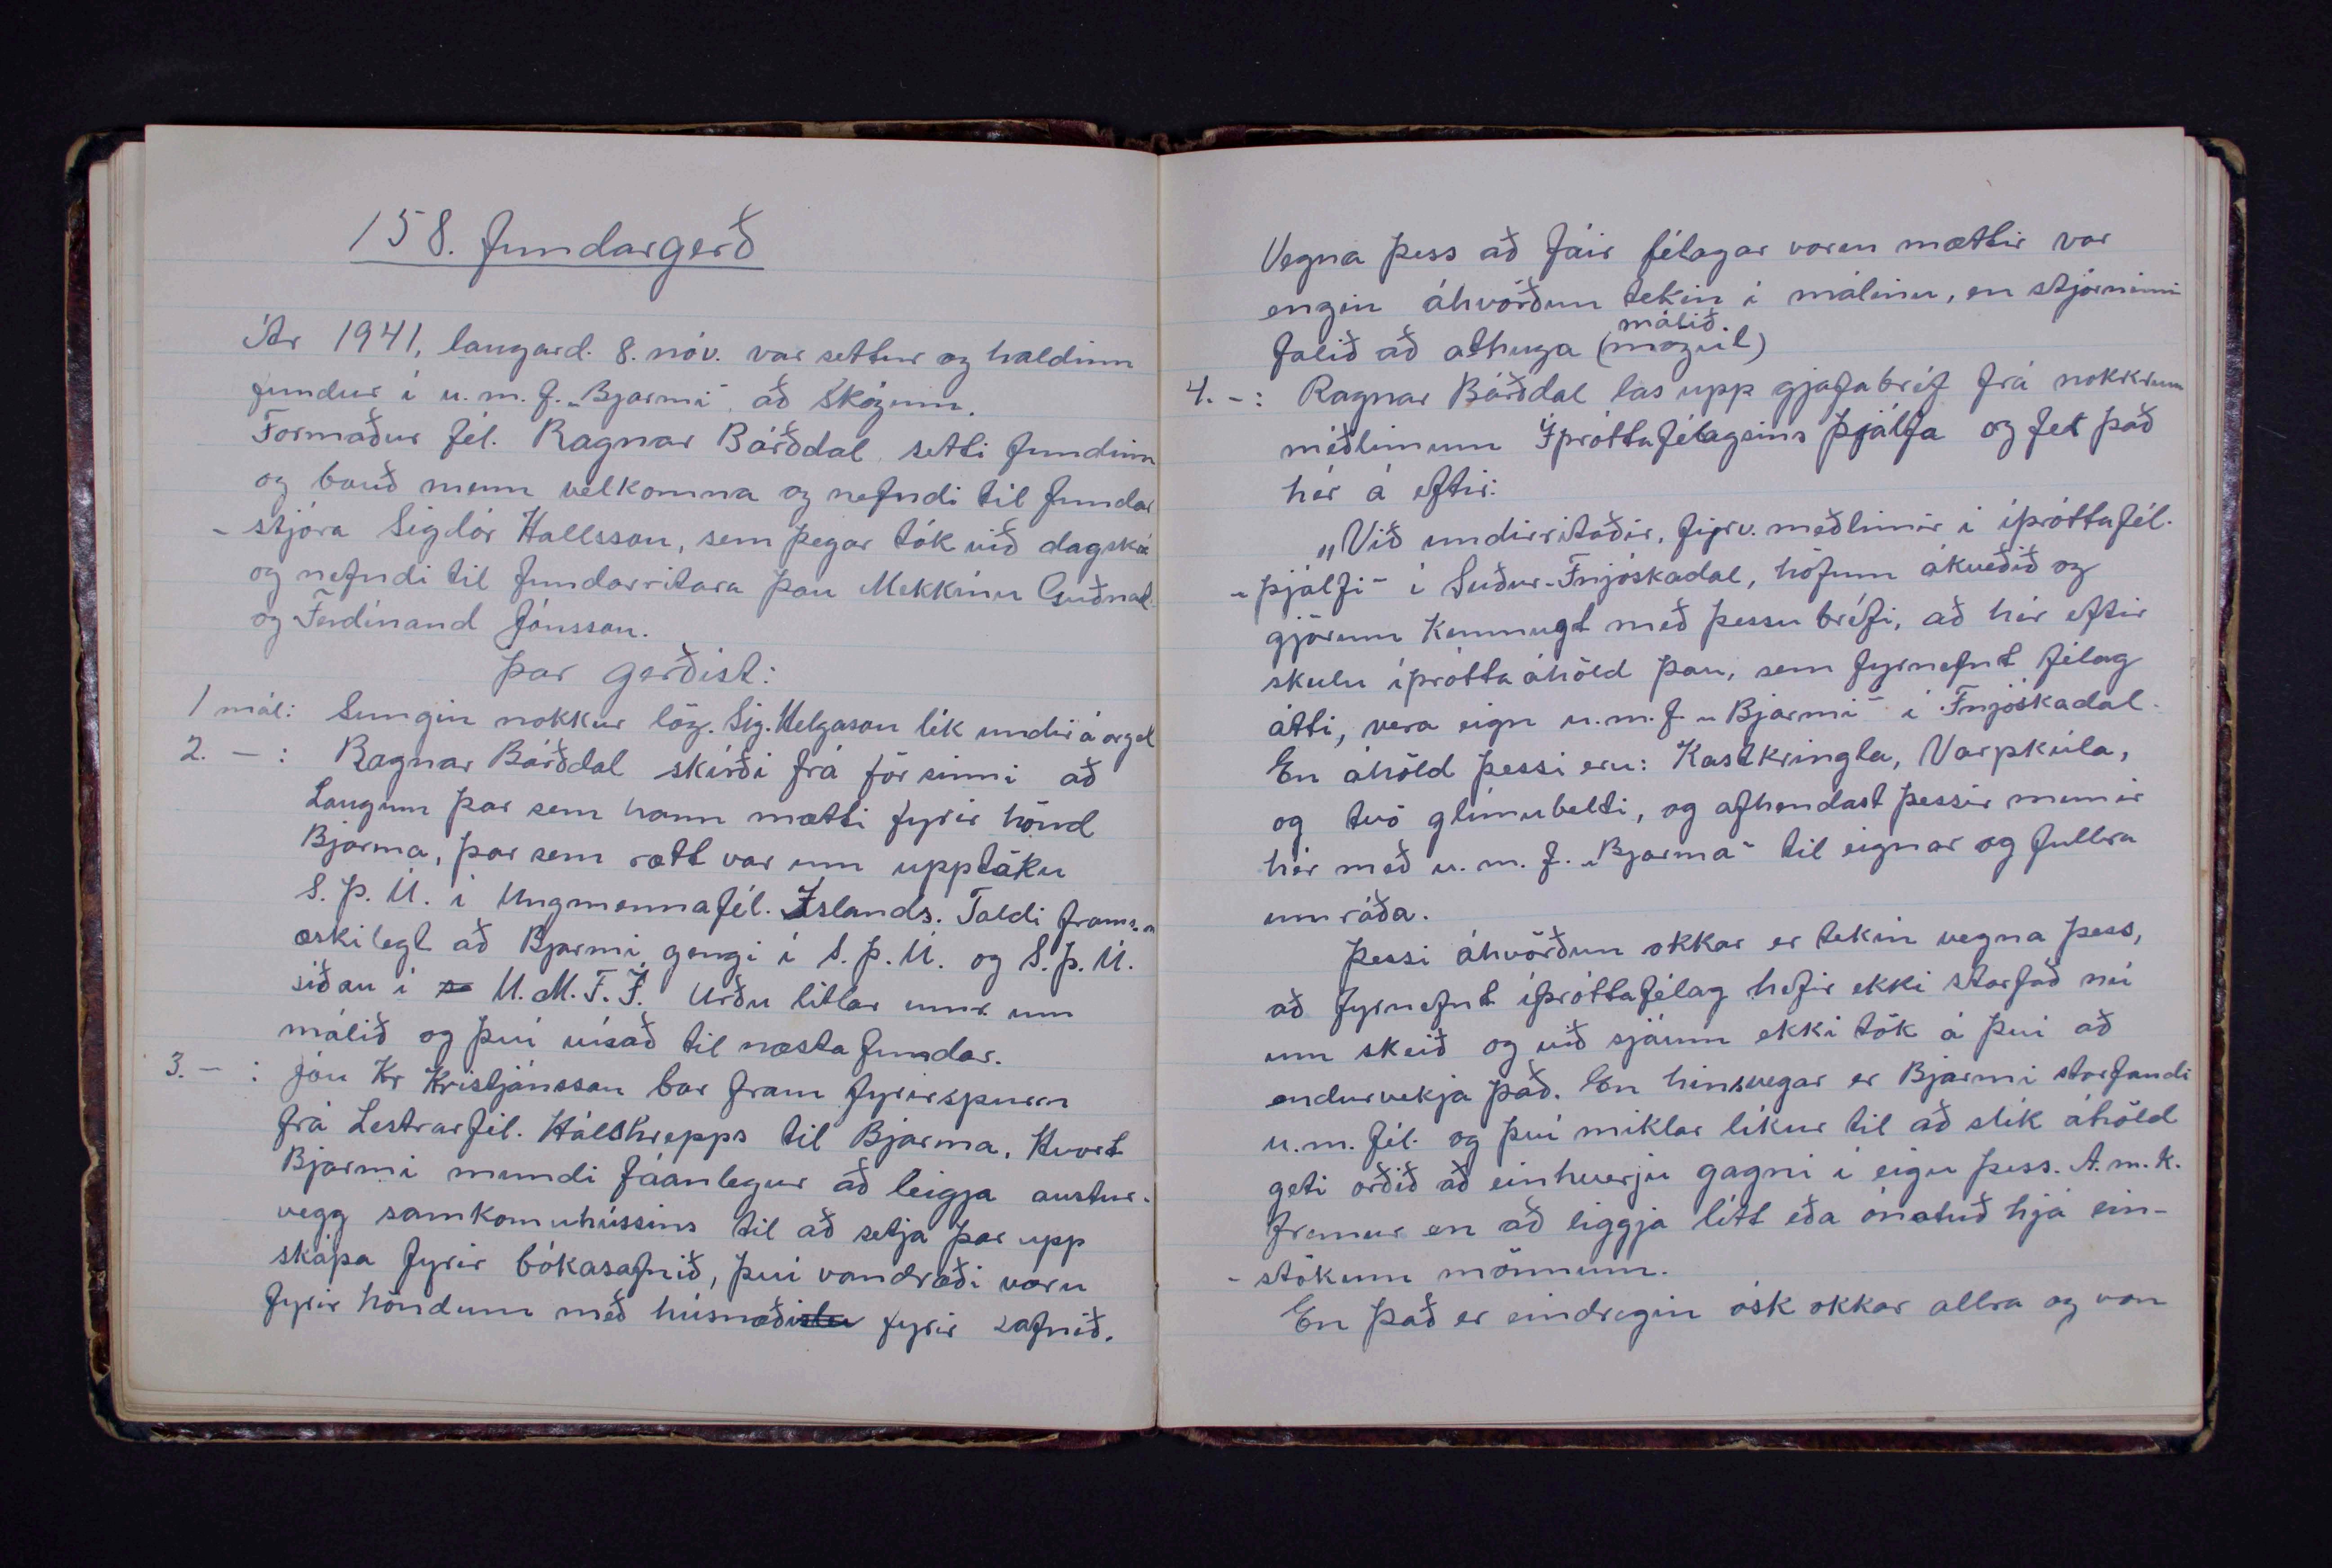 158. fundargerð
Ár 1941, laugard. 8. nóv. var settur og haldinn
fundur í u. m. f. „Bjarmi" að Skógum.
Formaður fél. Ragnar Bárðdal setti fundinn
og bauð menn velkomna og nefndi til fundar
- stjóra Sigdór Hallsson, sem þegar tók við dagskrá
og nefndi til fundarritara þau Mekkínu Guðnad.
og Ferdínand Jónsson.
Þar gerðist:
1 mál: Sungin nokkur lög. Sig. Helgason lék undir á orgel
2. - : Ragnar Bárðdal skírði frá för sinni að
Laugum þar sem hann mætti fyrir hönd
Bjarma, þar sem rætt var um upptöku
S. Þ. U. í Ungmennafél. Íslands. Taldi frams.m
æskilegt að Bjarmi gengi í S. Þ. U. og S. Þ. U.
síðan í U. M. F. Í. Urðu litlar umr. um
málið og því vísað til næsta fundar.
3. - : Jón Kr Kristjánsson bar fram fyrirspurn
frá Lestrarfél. Hálshrepps til Bjarma, Hvort
Bjarmi mundi fáanlegur að leigja austur-
vegg samkomuhússins til að setja þar upp
skápa fyrir bókasafnið, því vandræði væru
fyrir höndum með húsnæði fyrir safnið.
Vegna þess að fáir félagar voru mættir var
engin áhvörðun tekin í málinu, en stjórninni
málið.
falið að athuga (mögul)
4. - : Ragnar Bárðdal las upp gjafabréf frá nokkrum
meðlimum Íþróttafélagsins Þjálfa og fet það
hér á eftir:
„Við undirritaðir, fyrv. meðlimir í íþróttafél.
„Þjálfi" í Suður-Fnjóskadal, höfum ákveðið og
gjörum kunnugt með þessu bréfi, að hér eftir
skulu íþróttaáhöld þau, sem fyrnefnt félag
átti, vera eign u. m. f. „Bjarmi" í Fnjóskadal.
En áhöld þessi eru: Kastkringla, Varpkúla,
og tvö glímubelti, og afhendast þessir munir
hér með u. m. f. „Bjarma" til eignar og fullra
umráða.
Þessi áhvörðun okkar er tekin vegna þess,
að fyrnefnt íþróttafélag hefir ekki starfað nú
um skeið og við sjáum ekki tök á því að
endurvekja það. En hinsvegar er Bjarmi starfandi
u. m. fél. og því miklar líkur til að slík áhöld
geti orðið að einhverju gagni í eigu þess. A. m. k.
fremur en að liggja lítt eða ónotuð hjá ein-
- stökum mönnum.
En það er eindregin ósk okkar allra og von